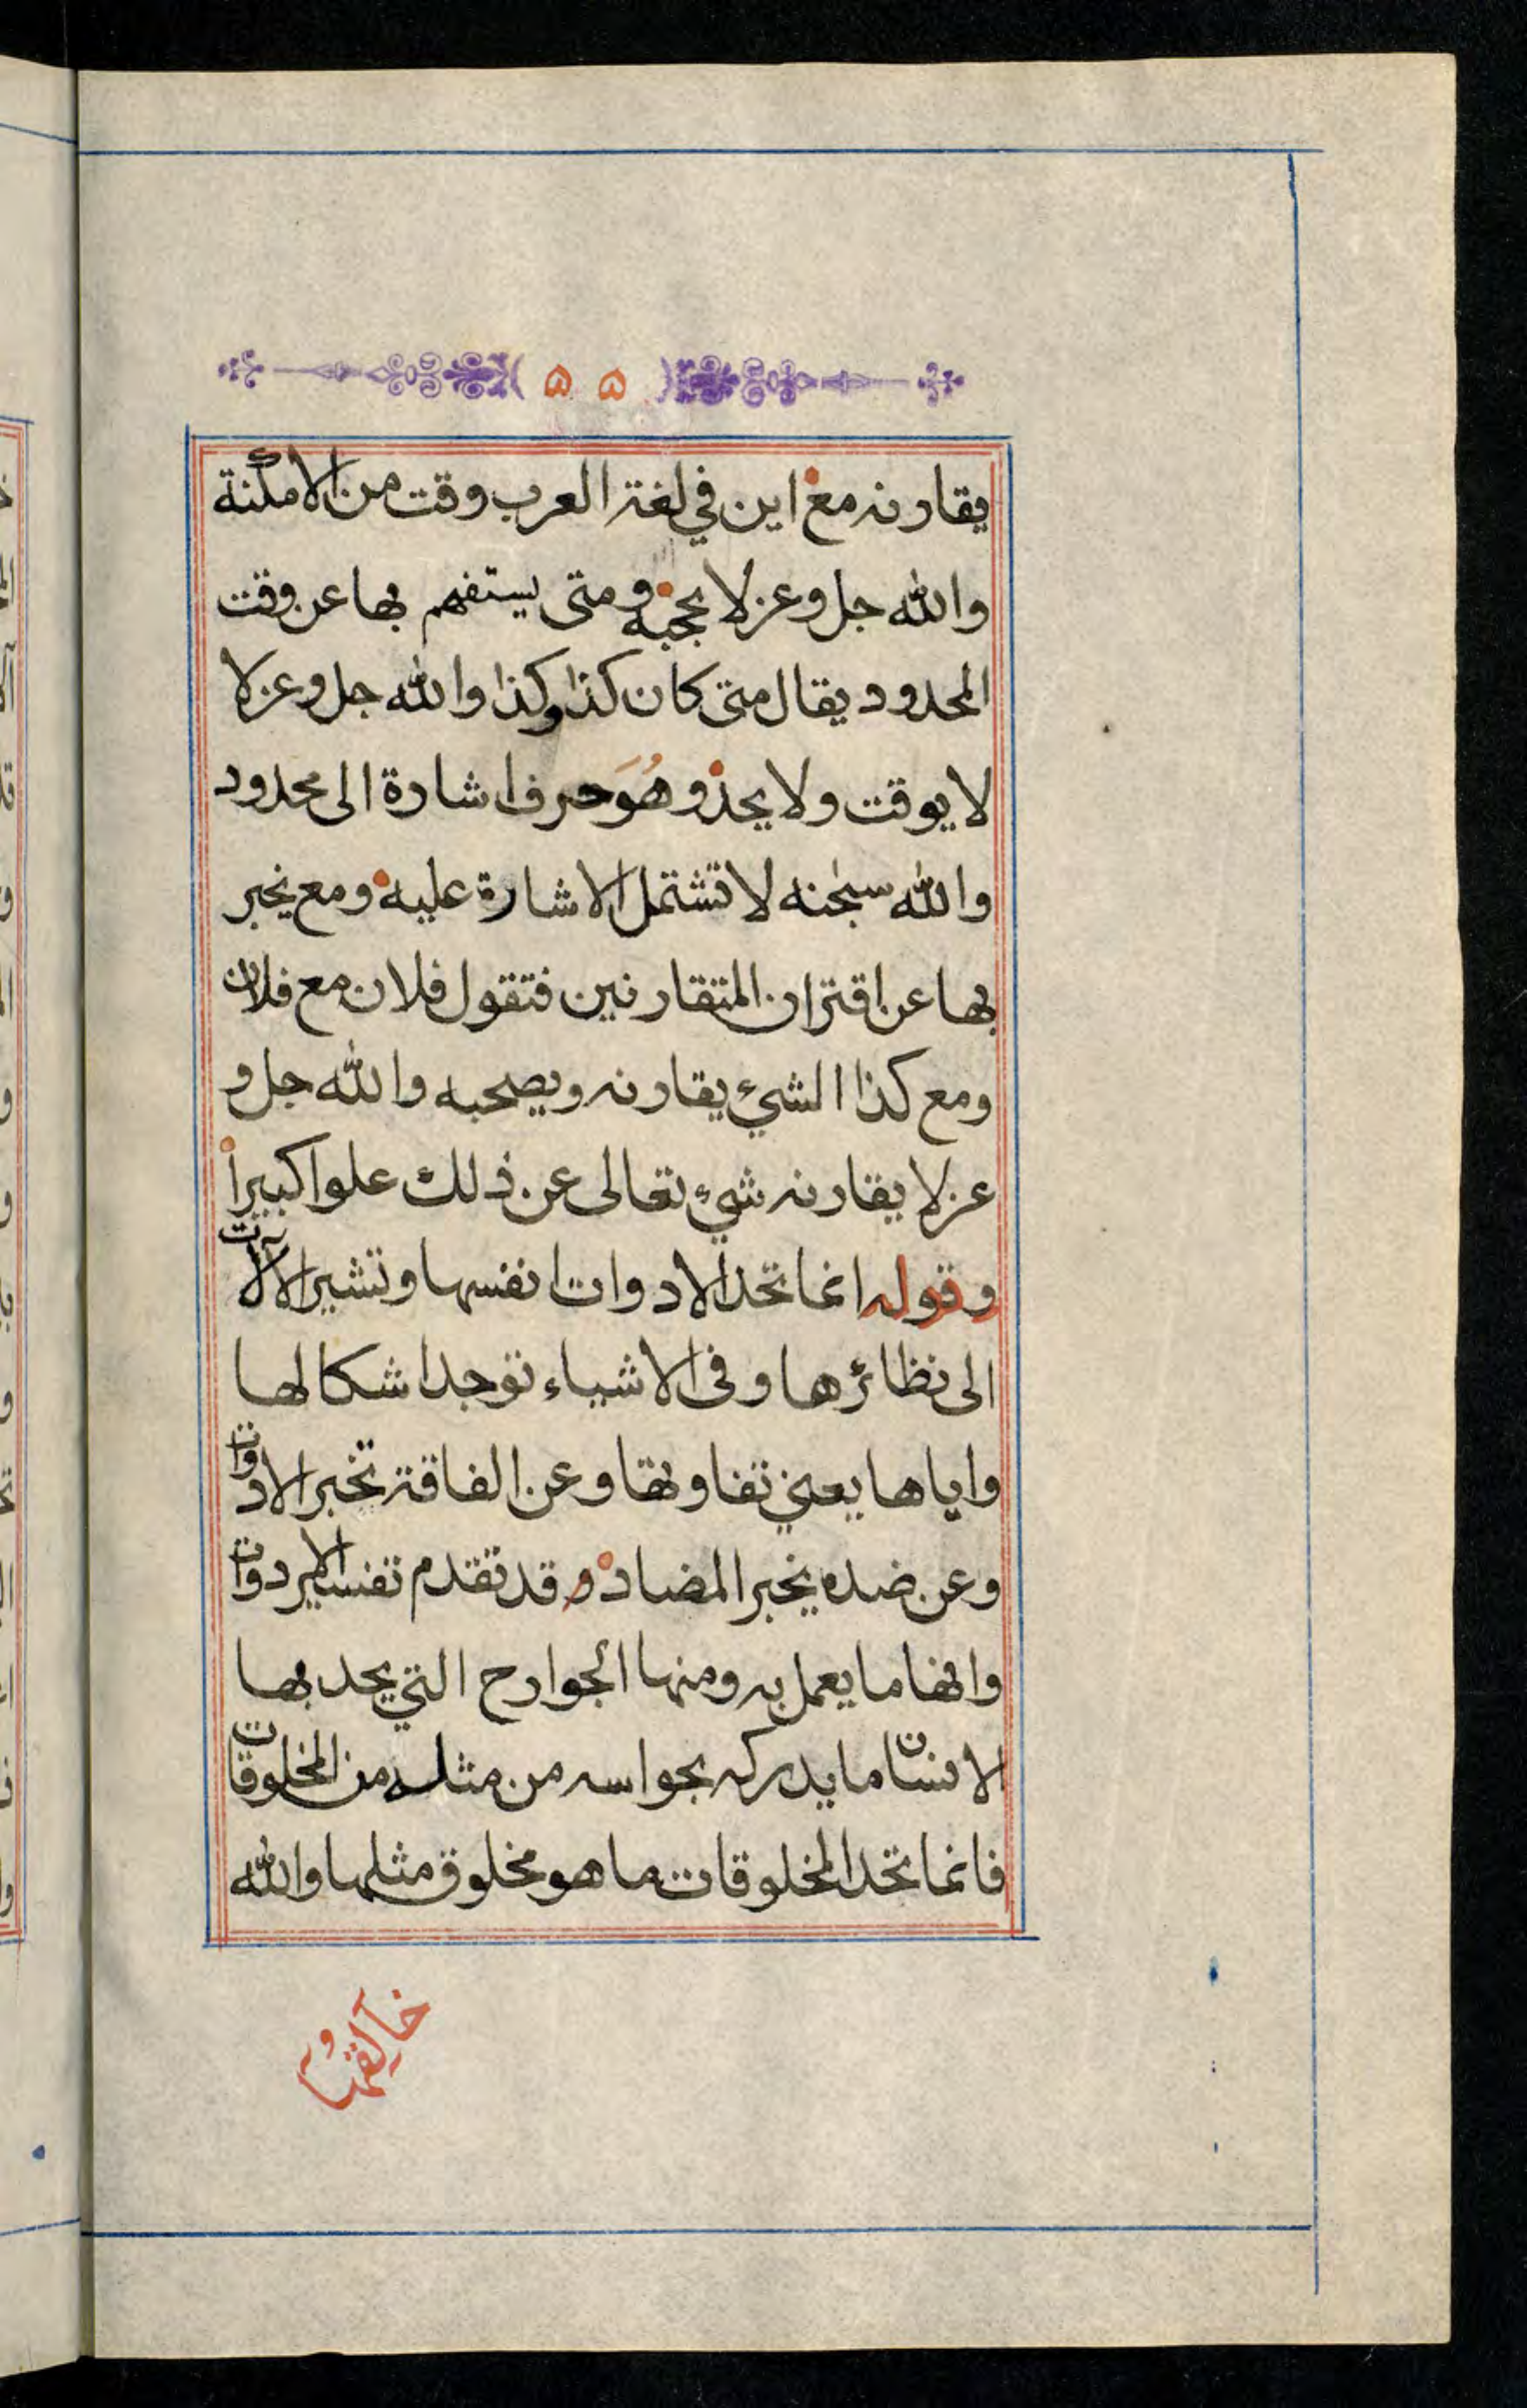 ٥٥
يقارنه مع اين في لغة العرب وقت من الامكنة
والله جل وعز لا يحجبه ومتى يستفهم بها عن وقت
المحدود يقال متى كان كذا وكذا والله جل وعز لا
لا يوقت ولا يحد وهُوَ حرف اشارة الى محدود
والله سبحٰنه لا تشتمل الاشارة عليه ومع يخبر
بها عن اقتران المتقارنين فتقول فلان مع فلان
ومع كذا الشيء يقارنه ويصحبه والله جل و
عز لا يقارنه شيء تعالى عن ذلك علوا كبيرا
وقوله انما تحد الادوات انفسها وتشير الآلات
الى نظائرها وفى الاشياء توجد اشكالها
واياها يعني تفاوتها وعن الفاقة تخبر الادوات
وعن ضده يخبر المضاد وقد تقدم تفسير الادوات
وانها ما يعمل به ومنها الجوارح التي يحد بها
الانسان ما يدركه بحواسه من مثله من المخلوقات
فانما تحد المخلوقات ما هو مخلوق مثلها والله
خالقها